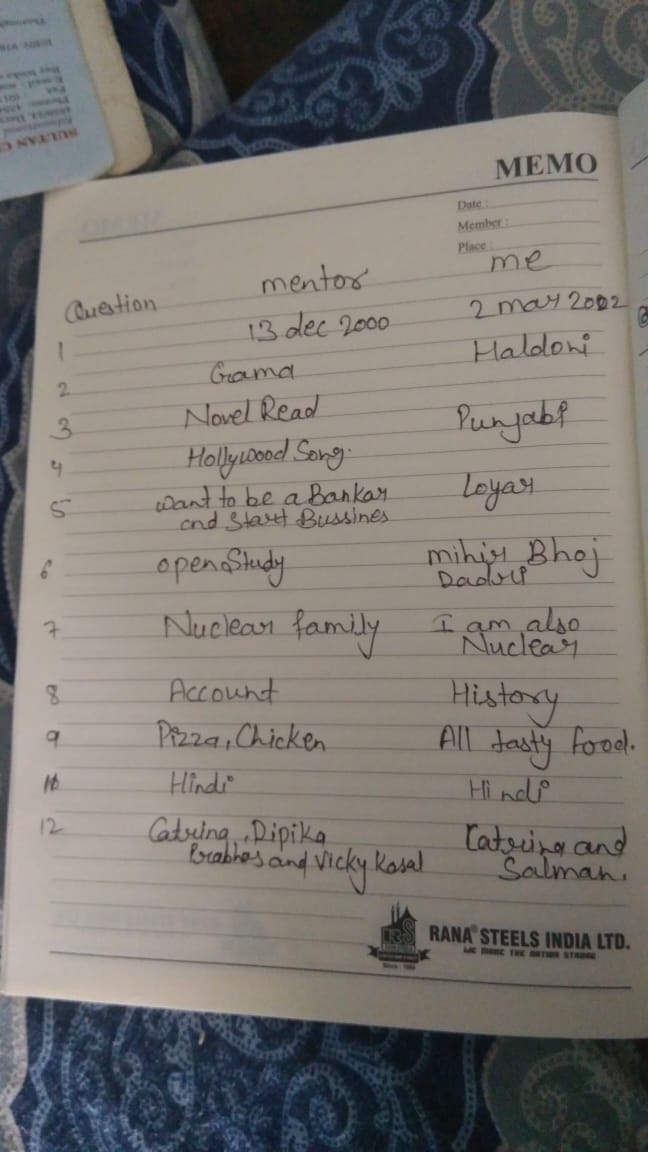 SULTAN C
MEMO
Date :
Member :
Place :
Question mentor me
1 13 dec 2000 2 may 2002
2 Grama Haldoni
3 Novel Read Punjabi
4 Hollywood Song.
5 want to be a Bankar Loyar
and Start Bussines
6 open Study mihir Bhoj
Dadri
7 Nuclear family I am also
Nuclear
8 Account History
9 Pizza, Chicken All tasty food.
10 Hindi Hindi
12 Catrina, Dipika Catrina and
Prabhas and Vicky Kosal Salman.
RANA STEELS INDIA LTD.
WE MAKE THE NATION STRONG